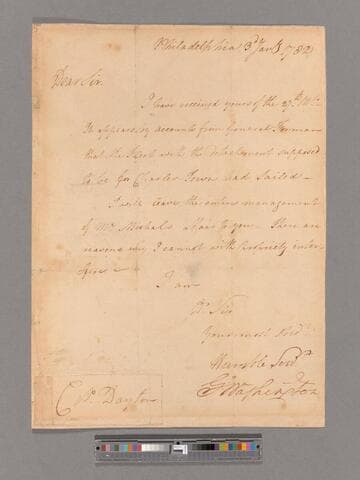 Philadelphia 3d Jany 1782
Dear Sir
I have received yours of the 27th Ulto.
It appears, by accounts from General Forman
that the Fleet with the detachment supposed
to be for Charles Town had sailed
I will leave the entire management
of Mr affair to you. There are
reasons why I cannot with propriety inter-
fere
I am
Dr Sir
Your most Obedt
Humble Servt
Go Washington
Colo. Dayton